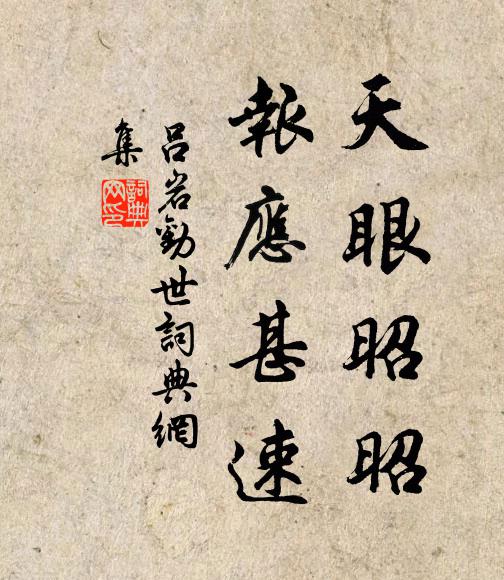 天眼昭昭
報應甚速
吕岩勸世詞典網
集
詞典网印